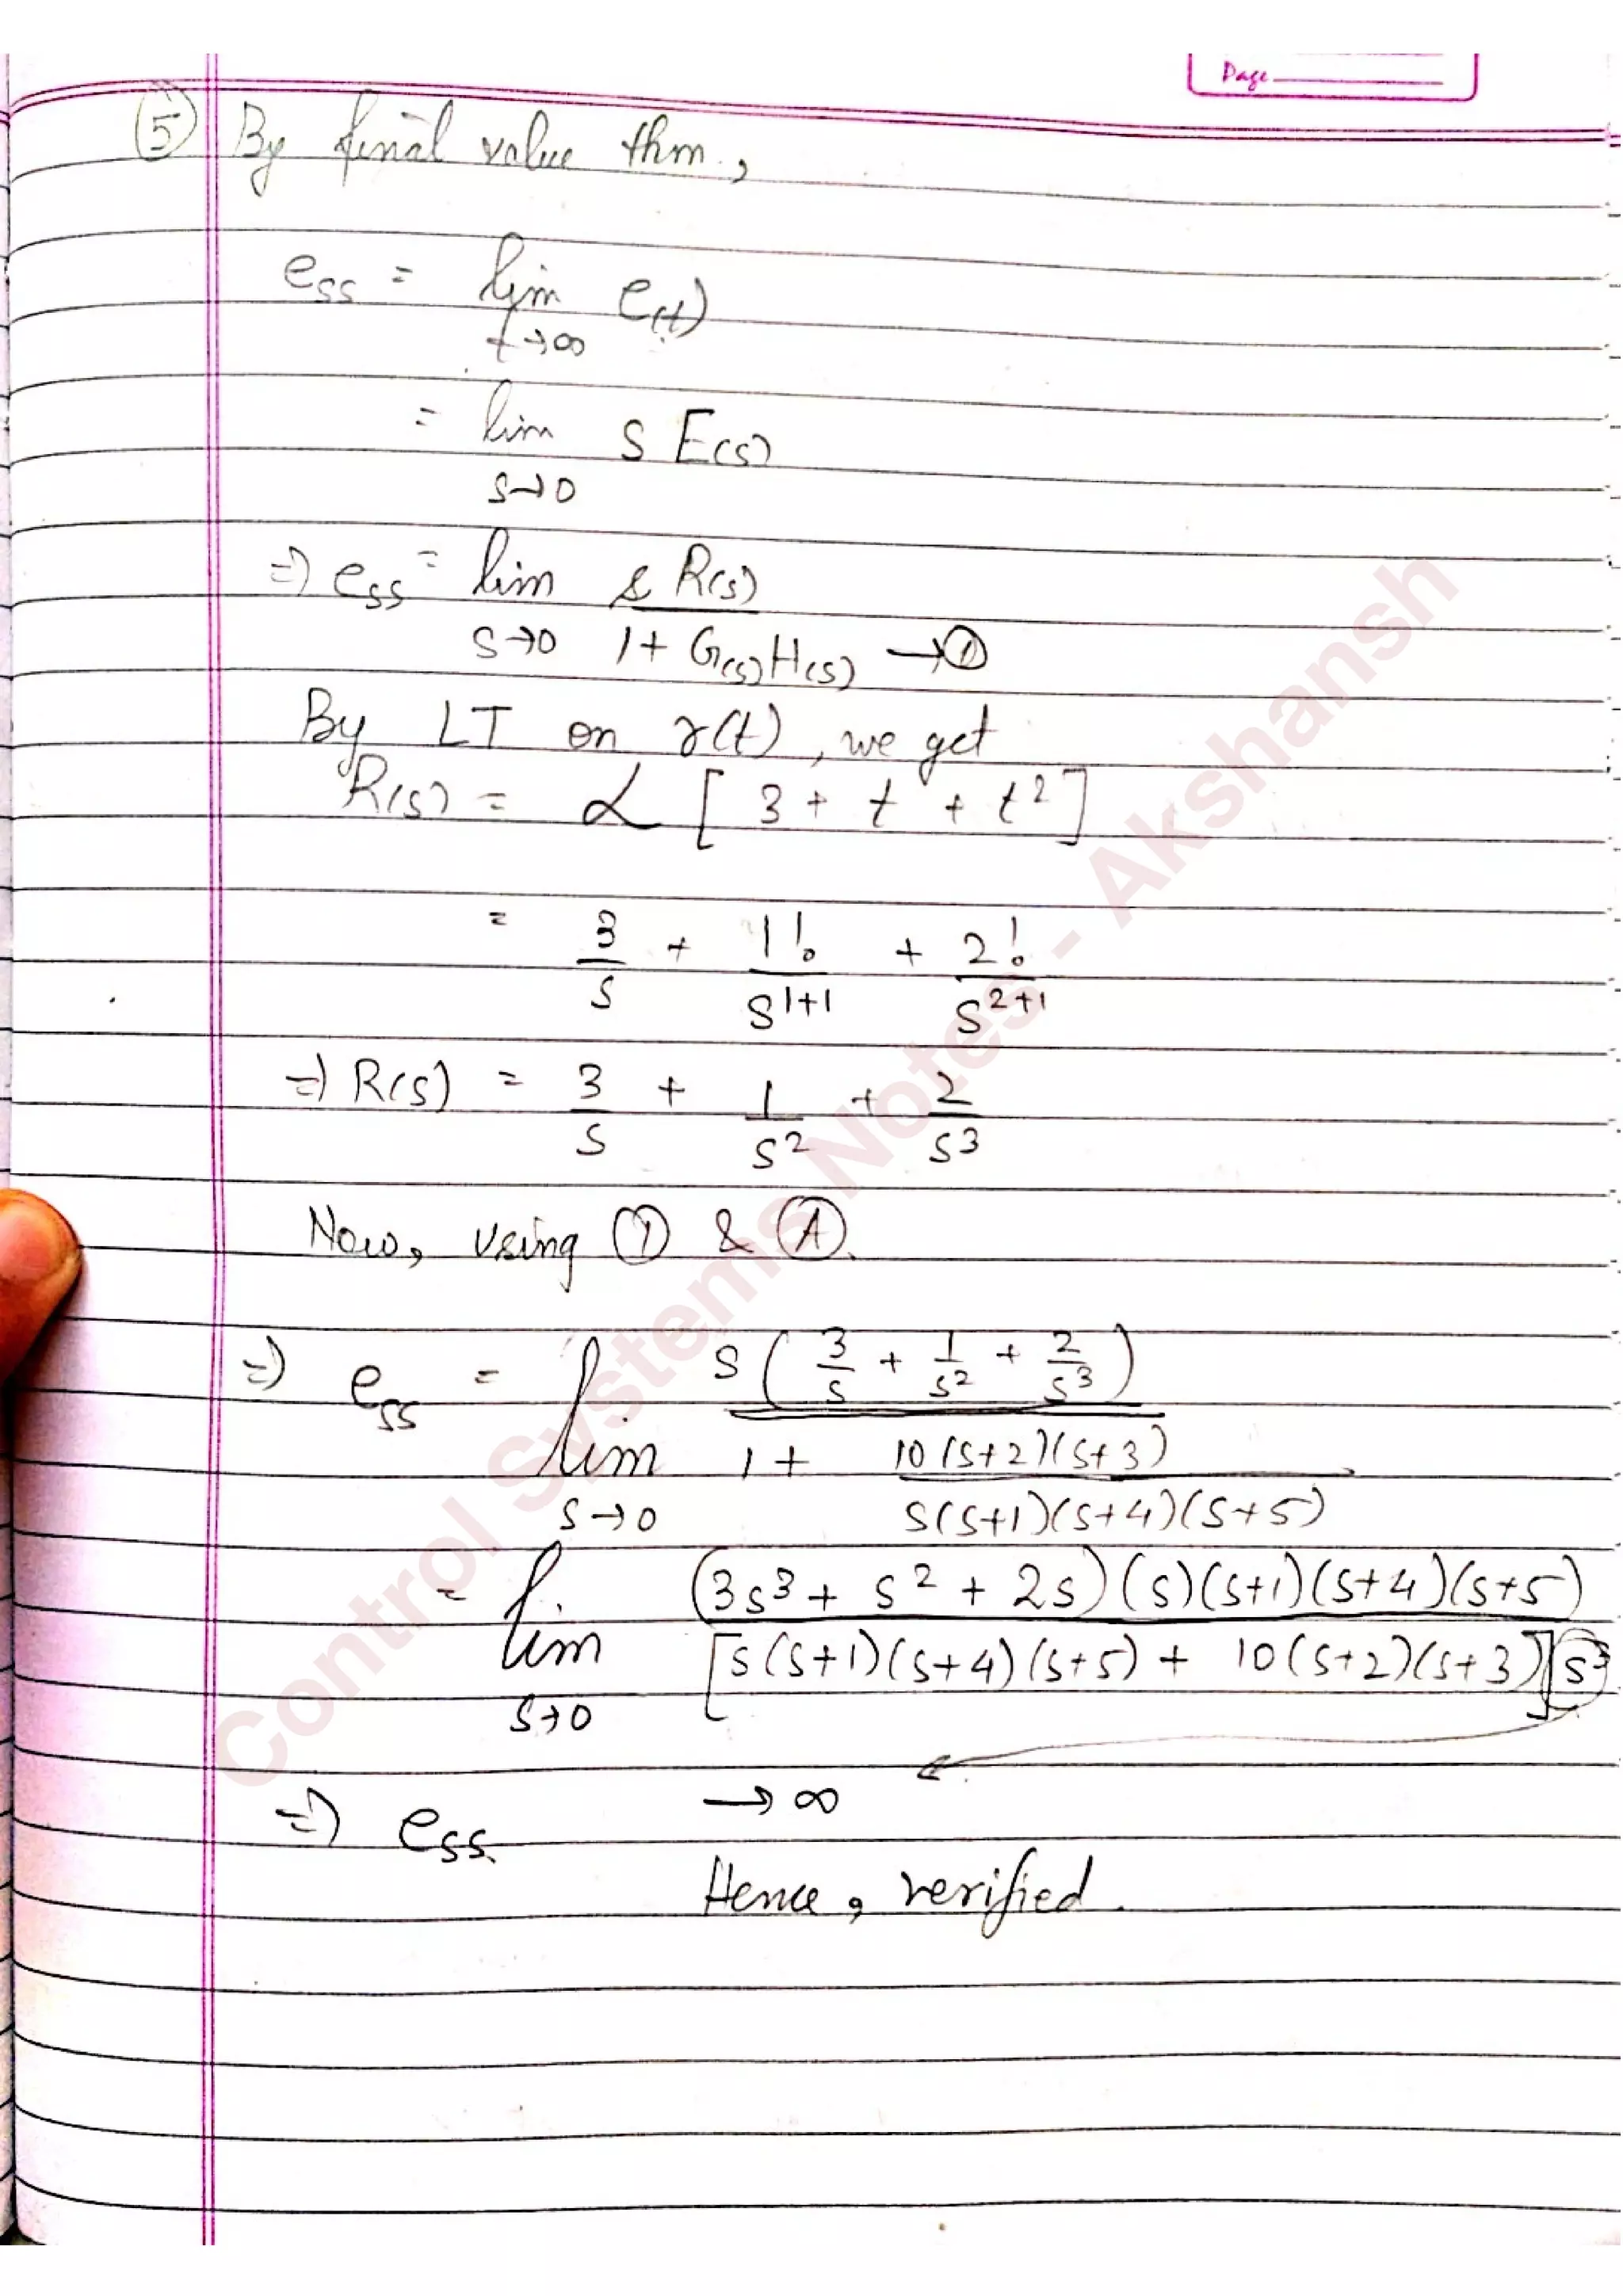 Page
⑤ By final value thm,
e_ss = lim_{t→∞} e(t)
= lim_{s→0} s E(s)
⇒ e_ss = lim_{s→0} s R(s) / 1 + G(s)H(s) → ①
By LT on r(t), we get
R(s) = L [ 3 + t + t² ]
= 3/s + 1!/s^{1+1} + 2!/s^{2+1}
⇒ R(s) = 3/s + 1/s² + 2/s³
Now, using ① & Ⓐ.
⇒ e_ss = lim_{s→0} s ( 3/s + 1/s² + 2/s³ ) / 1 + 10(s+2)(s+3) / s(s+1)(s+4)(s+5)
= lim_{s→0} (3s³ + s² + 2s)(s)(s+1)(s+4)(s+5) / [s(s+1)(s+4)(s+5) + 10(s+2)(s+3)] s³
⇒ e_ss. → ∞
Hence, verified.
Control Systems Notes - Akshansh